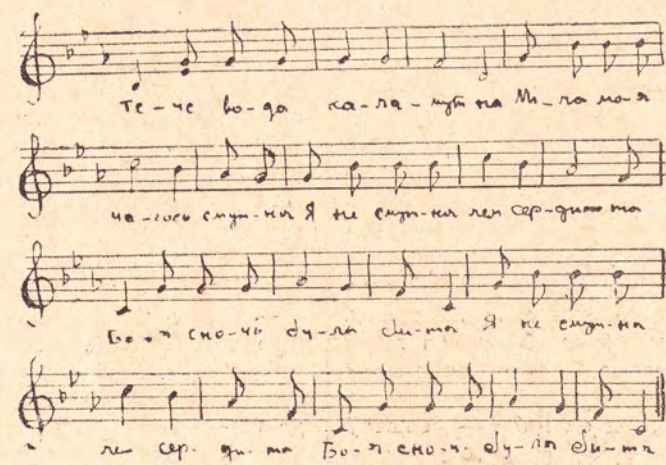 Те-че во-да ка-ла-мутна Мі-ла мо-я
чо-гось смут-на Я не смут-на лем сер-дита та
Бо-я сно-чы бу-ла би-та Я не смут-на
лем сер-ди-та Бо-я сно-чи бу-ла би-та